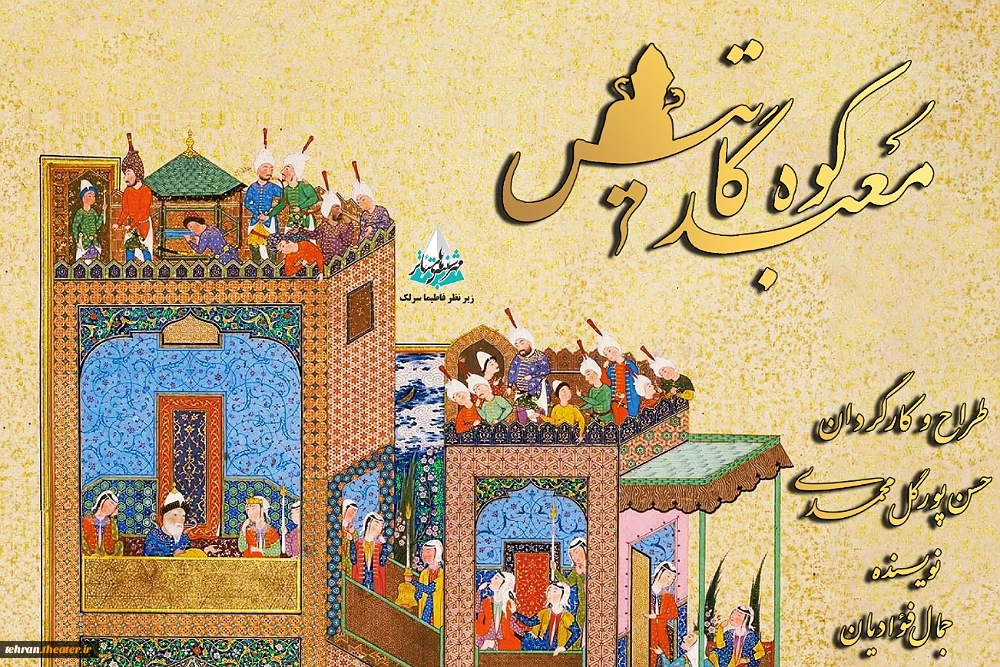 معبد کوه کاردتیس
زیر نظر فاطیما سرلک
طراح و کارگردان
حسن پورگل محمدی
نویسنده
جمال فؤادیان
tehran.theater.ir